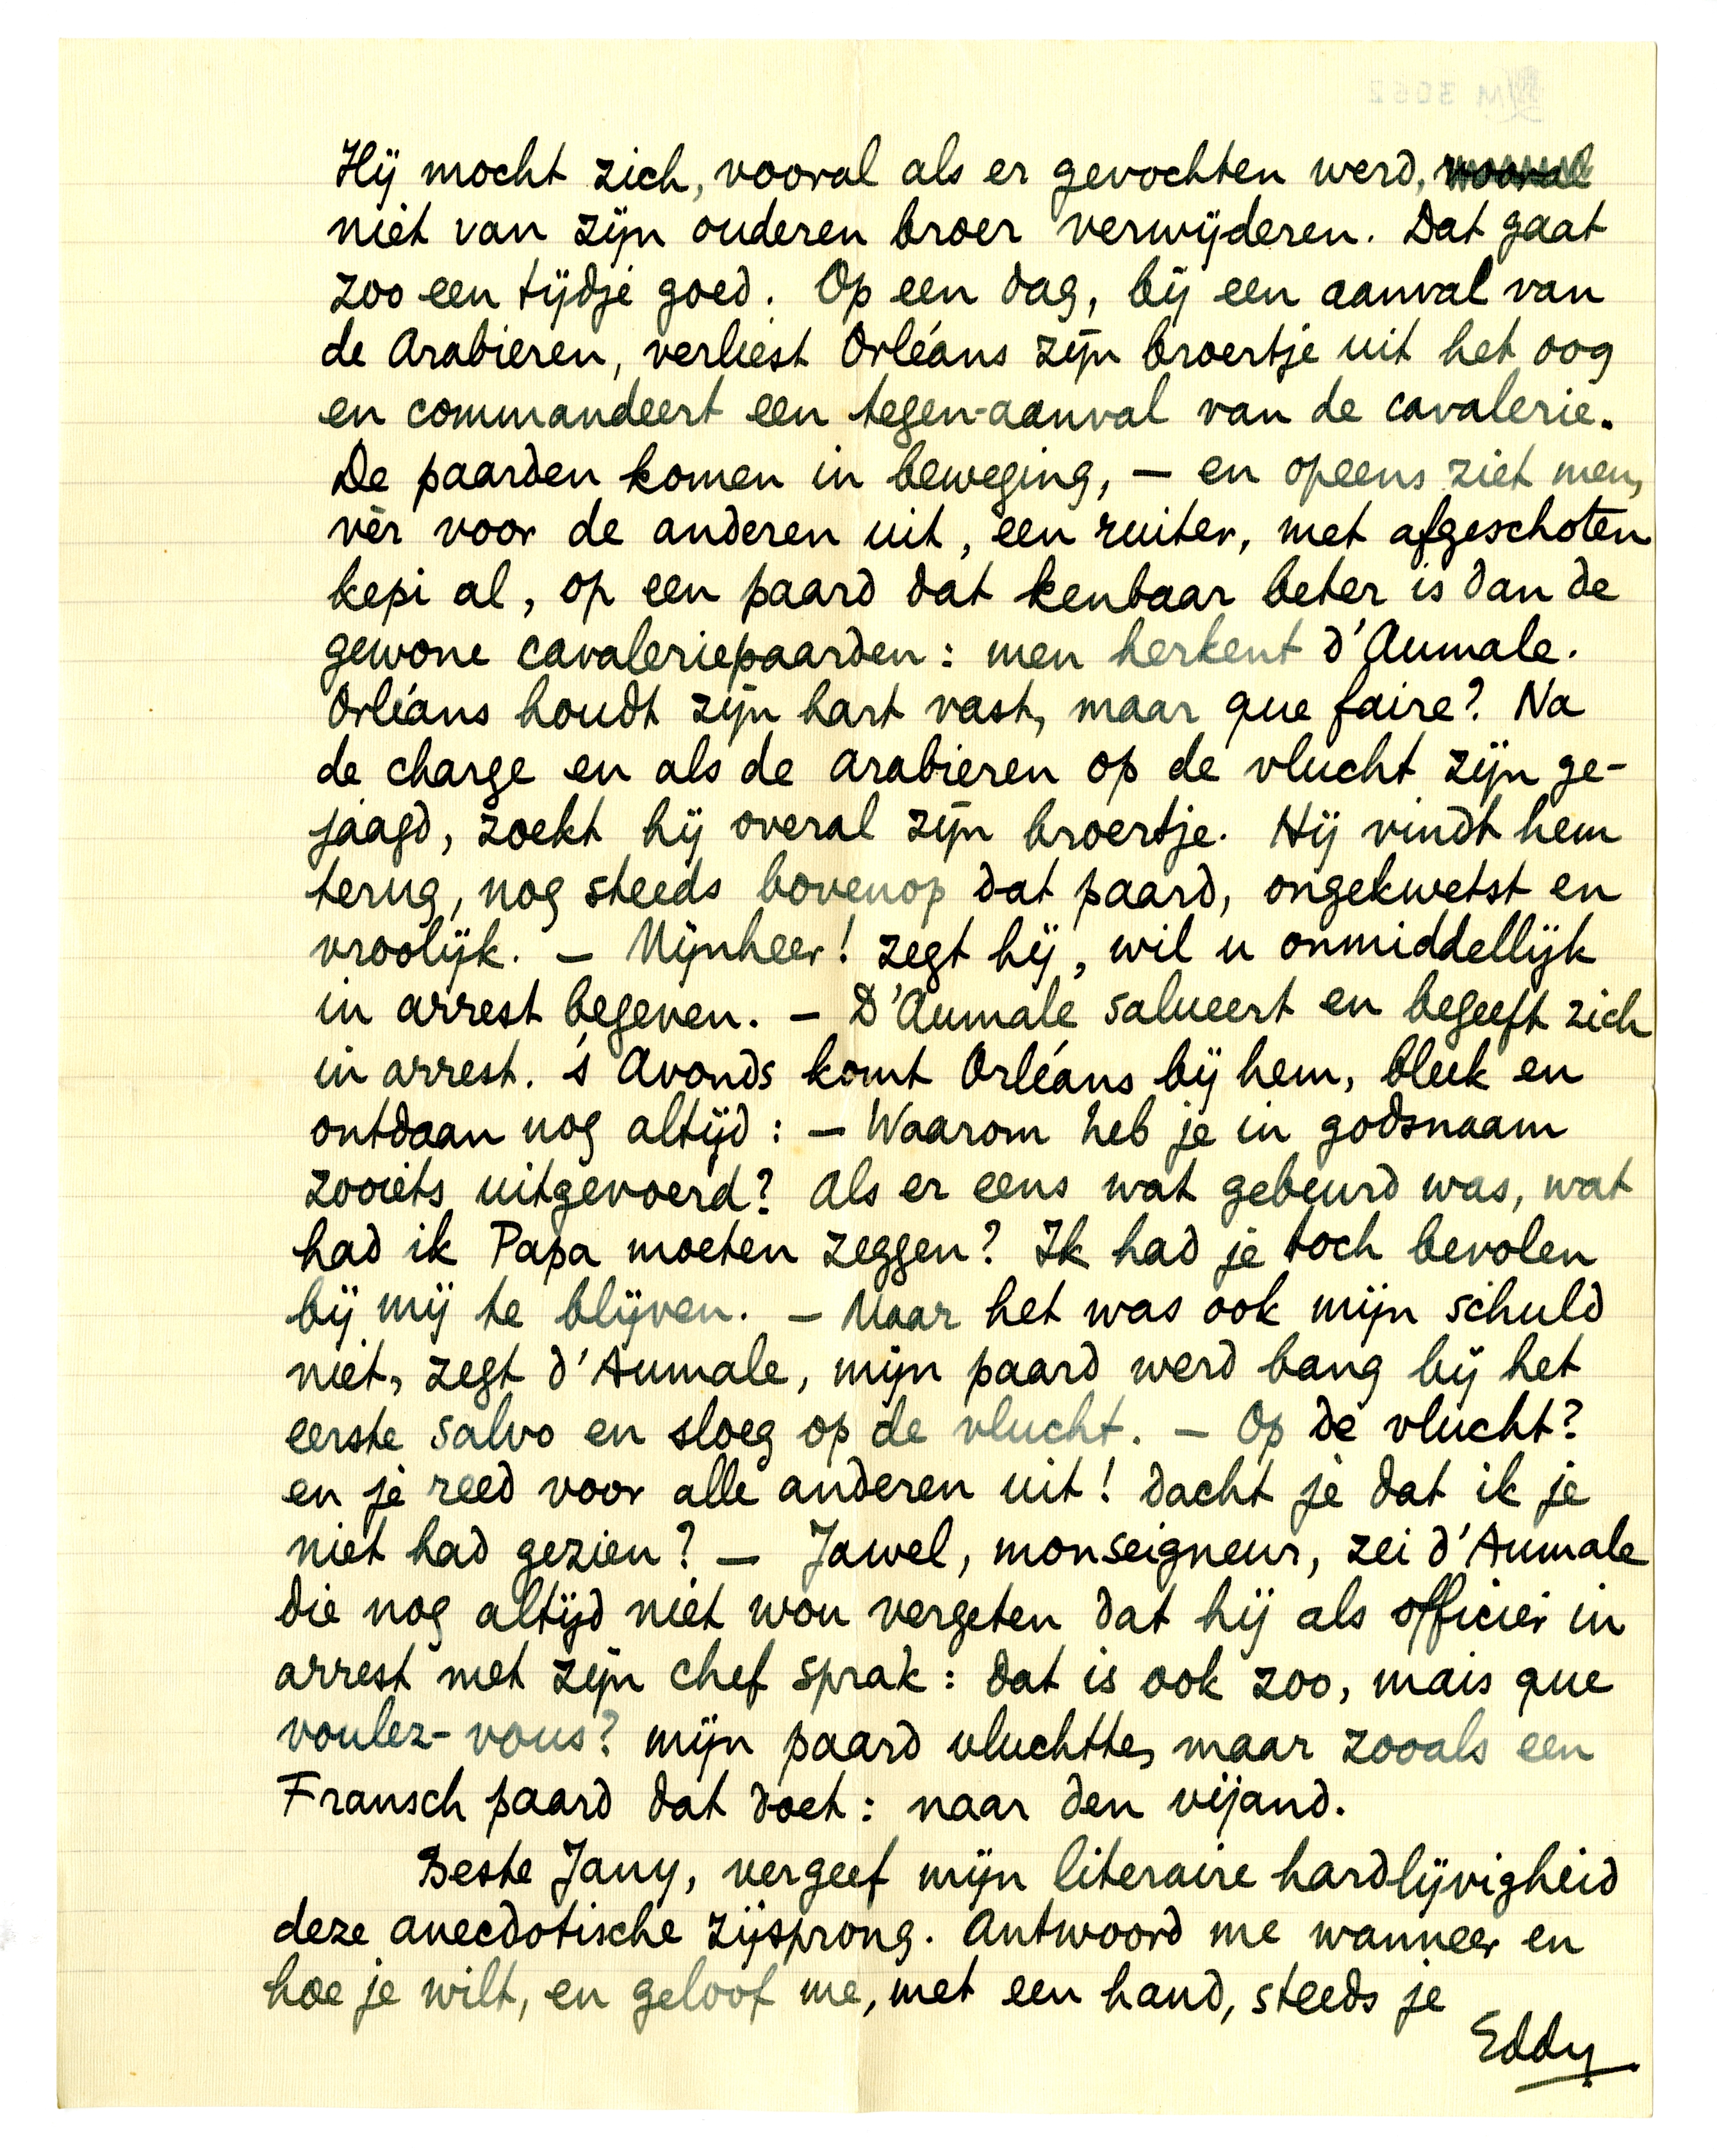 Hij mocht zich, vooral als er gevochten werd, vooral
niet van zijn ouderen broer verwijderen. Dat gaat
zoo een tijdje goed. Op een dag, bij een aanval van
de Arabieren, verliest Orléans zijn broertje uit het oog
en commandeert een tegen-aanval van de cavalerie.
De paarden komen in beweging, — en opeens ziet men,
vèr voor de anderen uit, een ruiter, met afgeschoten
kepi al, op een paard dat kenbaar beter is dan de
gewone cavaleriepaarden: men herkent d'Aumale.
Orléans houdt zijn hart vast, maar que faire? Na
de charge en als de Arabieren op de vlucht zijn ge-
jaagd, zoekt hij overal zijn broertje. Hij vindt hem
terug, nog steeds bovenop dat paard, ongekwetst en
vroolijk. — Mijnheer! zegt hij, wil u onmiddellijk
in arrest begeven. — D'Aumale salueert en begeeft zich
in arrest. 's Avonds komt Orléans bij hem, bleek en
ontdaan nog altijd: — Waarom heb je in godsnaam
zooiets uitgevoerd? Als er eens wat gebeurd was, wat
had ik Papa moeten zeggen? Ik had je toch bevolen
bij mij te blijven. — Maar het was ook mijn schuld
niet, zegt d'Aumale, mijn paard werd bang bij het
eerste salvo en sloeg op de vlucht. — Op de vlucht?
en je reed voor alle anderen uit! dacht je dat ik je
niet had gezien? — Jawel, monseigneur, zei d'Aumale
die nog altijd niet wou vergeten dat hij als officier in
arrest met zijn chef sprak: dat is ook zoo, mais que
voulez-vous? mijn paard vluchtte, maar zooals een
Fransch paard dat doet: naar den vijand.
Beste Jany, vergeef mijn literaire hardlijvigheid
deze anecdotische zijsprong. Antwoord me wanneer en
hoe je wilt, en geloof me, met een hand, steeds je
Eddy